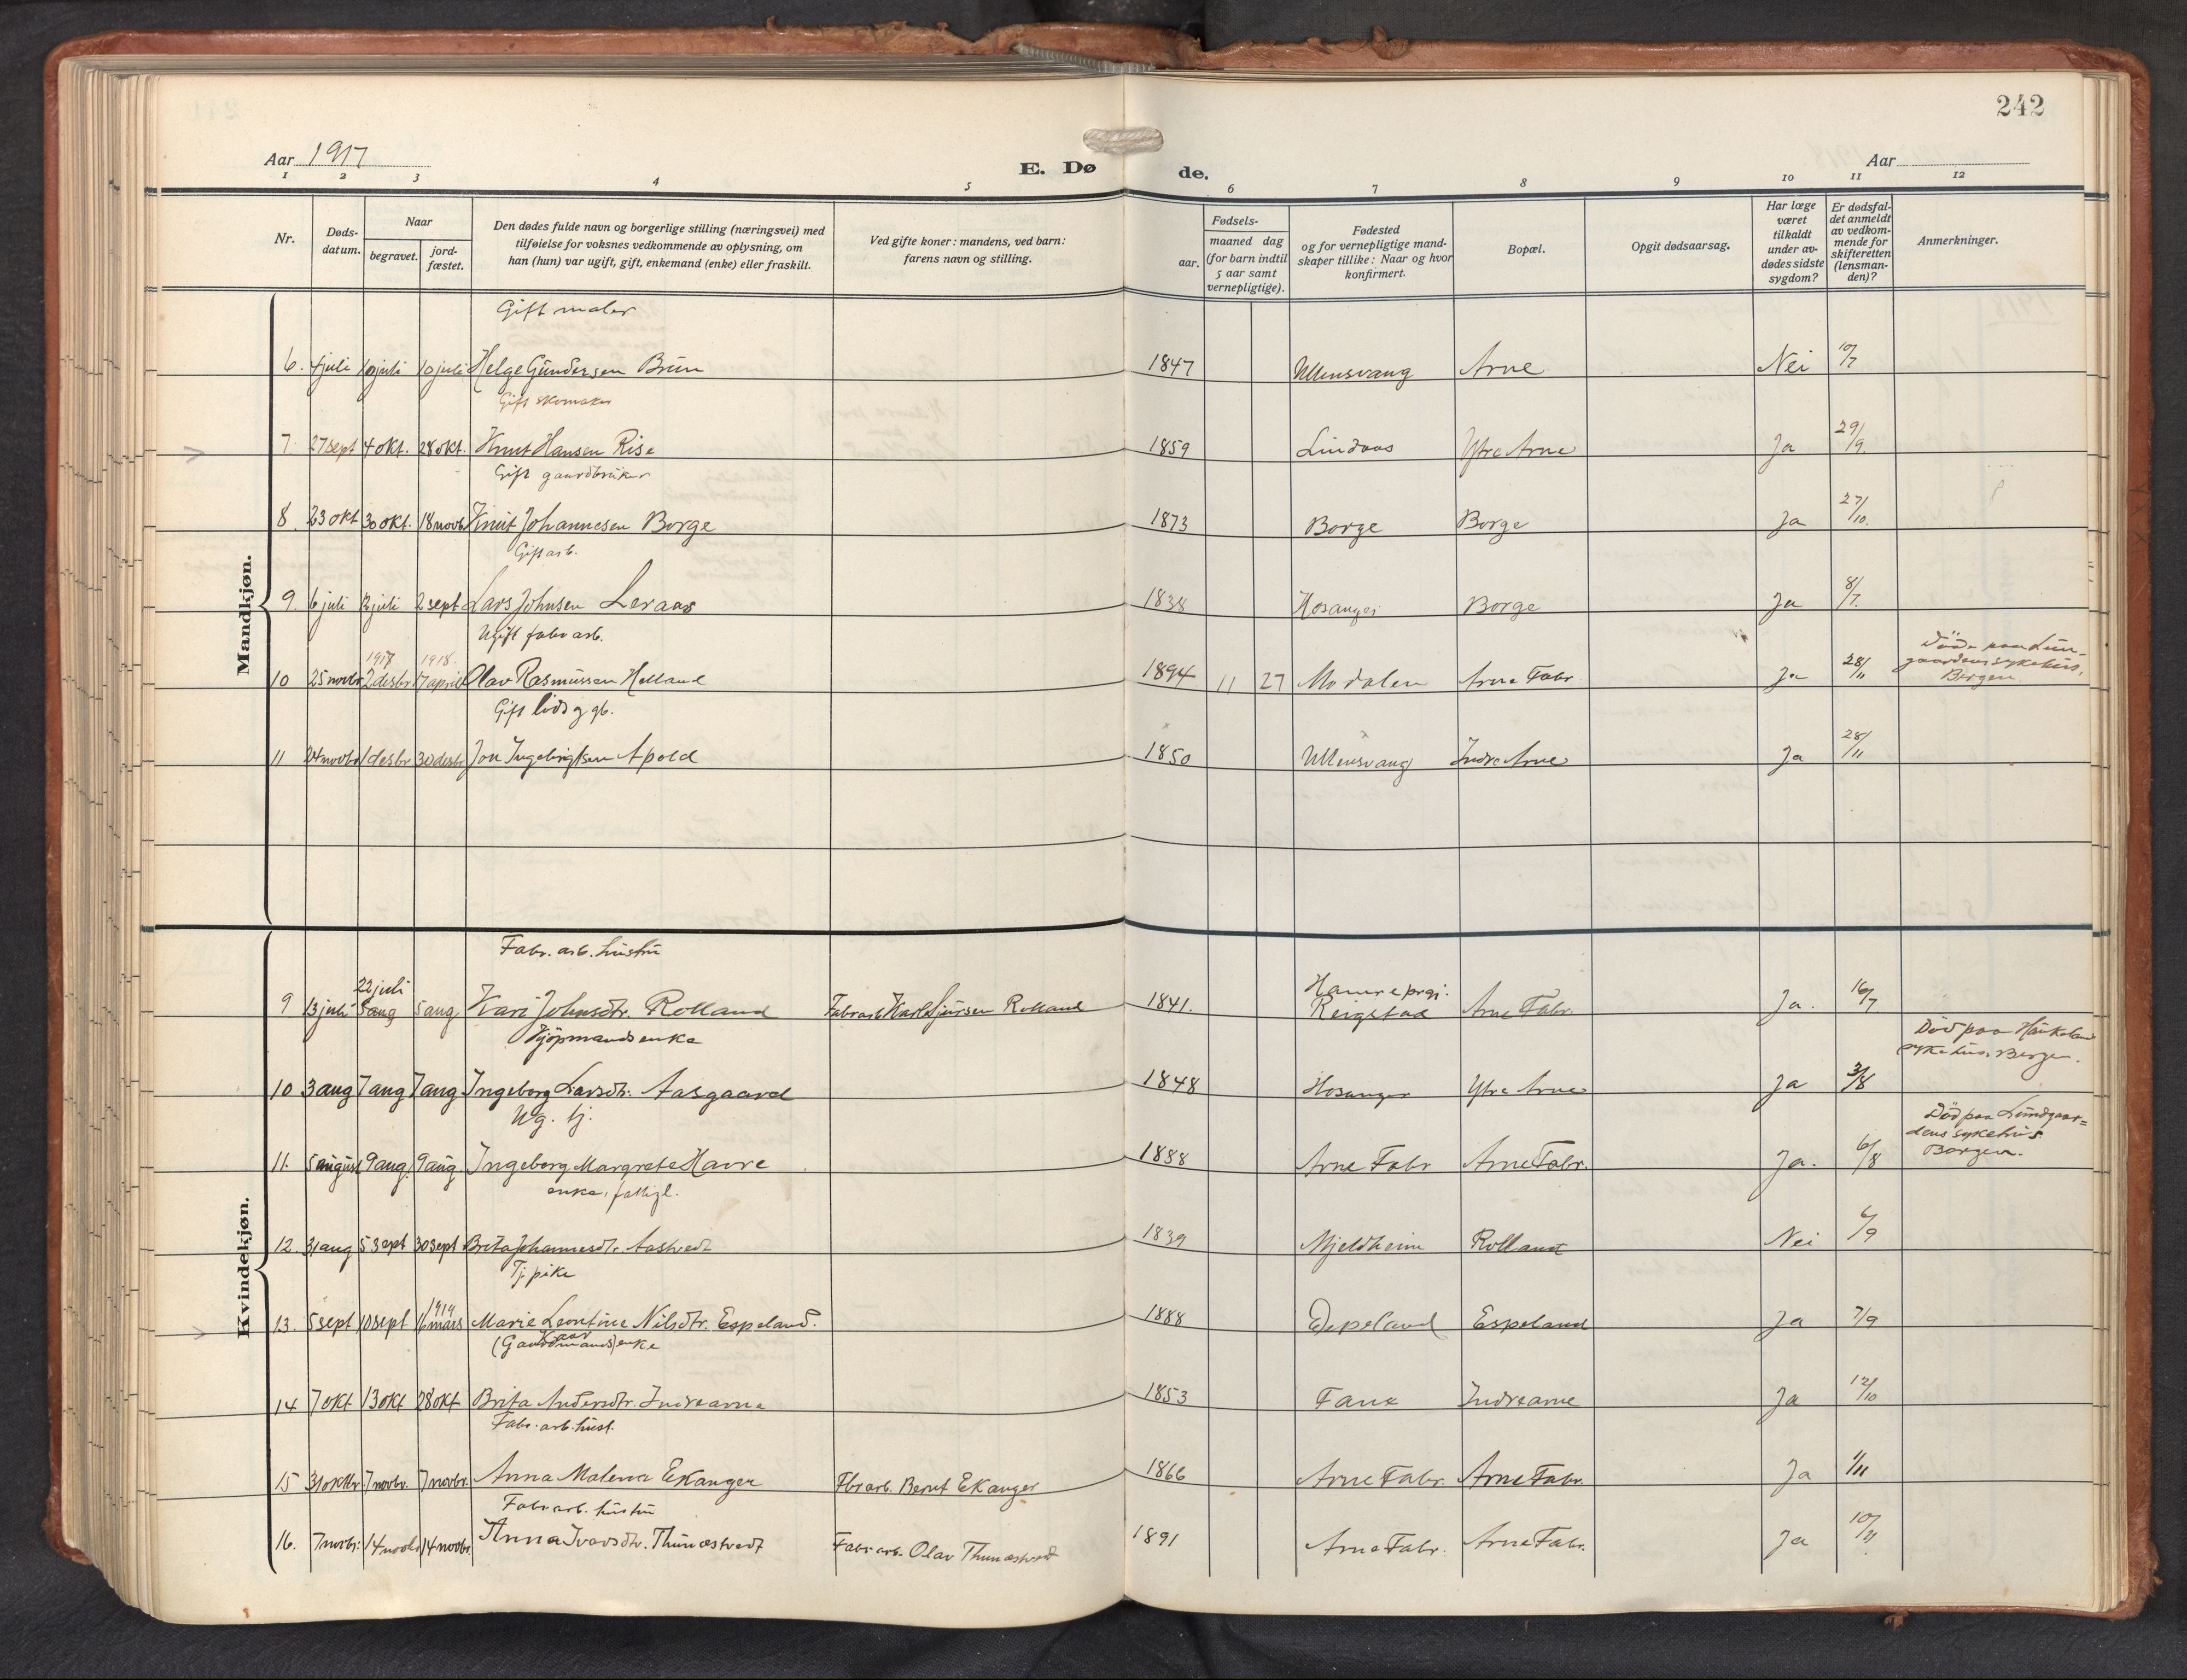 242
Aar 1917
E. Døde.
Aar
1 2 3 4 5 6 7 8 9 10 11 12
Nr.
Døds-
datum.
Naar
begravet.
jord-
fæstet.
Den dødes fulde navn og borgerlige stilling (næringsvei) med
tilføielse for voksnes vedkommende av oplysning, om
han (hun) var ugift, gift, enkemand (enke) eller fraskilt.
Ved gifte koner: mandens, ved barn:
farens navn og stilling.
Fødsels-
aar.
maaned dag
(for barn indtil
5 aar samt
vernepligtige).
Fødested
og for vernepligtige mand-
skaper tillike: Naar og hvor
konfirmert.
Bopæl.
Opgit dødsaarsag.
Har læge
været
tilkaldt
under av-
dødes sidste
sygdom?
Er dødsfal-
det anmeldt
av vedkom-
mende for
skifteretten
(lensman-
den)?
Anmerkninger.
Mandkjøn.
Gift maler
6. 4 juli 10 juli 10 juli Helge Gundersen Brun 1847 Ullensvang Arne Nei 10/7
Gift skomaker
7 27 sept 4 okt. 28 okt. Knut Hansen Rise 1859 Lindaas Ytre Arne Ja 29/9.
Gift gaardbruker
8 23 okt 30 okt. 18 novb. Knut Johannesen Borge 1873 Borge Borge Ja 27/10.
Gift arb.
9. 6 juli juli 2 sept Lars Johnsen Leraas 1838 Hosanger Borge Ja 8/7.
Ugift fabr arb.
1917 1918
10 25 novbr 2 desbr 7 april Olav Rasmussen Helland 1894 11 27 Modalen Arne Fabr Ja 28/11
Död paa Lun-
gaardens sykehus,
Bergen
Gift
11 24 novbr 1 desbr 30 desbr Jon Ingebrigtsen Apold 1850 Ullensvang Indre Arne Ja 28/11
Kvindekjøn.
Fabr. arb. hustru
22 juli
9 13 juli 5 aug 5 aug Kari Johnsdtr. Rolland Fabr arb Karl Sjursen Rolland 1841. Hamre prgj. Reigstad Arne Fabr. Ja. 16/7
Kjöpmands enke
10 3 aug 7 aug 7 aug Ingeborg Larsdtr. Aasgaard 1848 Hosanger Ytre Arne Ja 3/8
Död paa Haukeland
sykehus, Bergen.
Ug. tj.
11. 5 august 9 aug. 9 aug Ingeborg Margrete Havre 1888 Arne Fabr Arne Fabr. Ja. 6/8
Död paa Lundgaar=
dens sykehus.
Bergen.
enke, fattigl.
12. 31 aug 5 sept 30 sept Brita Johannesdtr. Aastvedt 1839 Mjeldheim Rolland Nei 6/9
Tj pike
1919
13. 5 sept 10 sept 16 mars Marie Leontine Nilsdtr. Espeland. 1888 Espeland Espeland Ja 7/9
Kaar
(Gaardmands) enke
14 7 okt 13 okt 28 okt Brita Andersdtr. Indrearne 1853 Fane Indrearne Ja 12/10
Fabr. arb. hust.
15 31 oktbr 7 novbr. 7 novbr. Anna Malena Ekanger Fbr arb. Bernt Ekanger 1866 Arne Fabr. Arne Fabr. Ja 1/11
Fabr arb. hustru
16. 7 novbr: 14 novbr 14 novbr. Anna Ivarsdtr. Thunæstvedt Fabr arb. Olav Thunæstvedt 1891 Arne Fabr. Arne Fabr. Ja 10/11